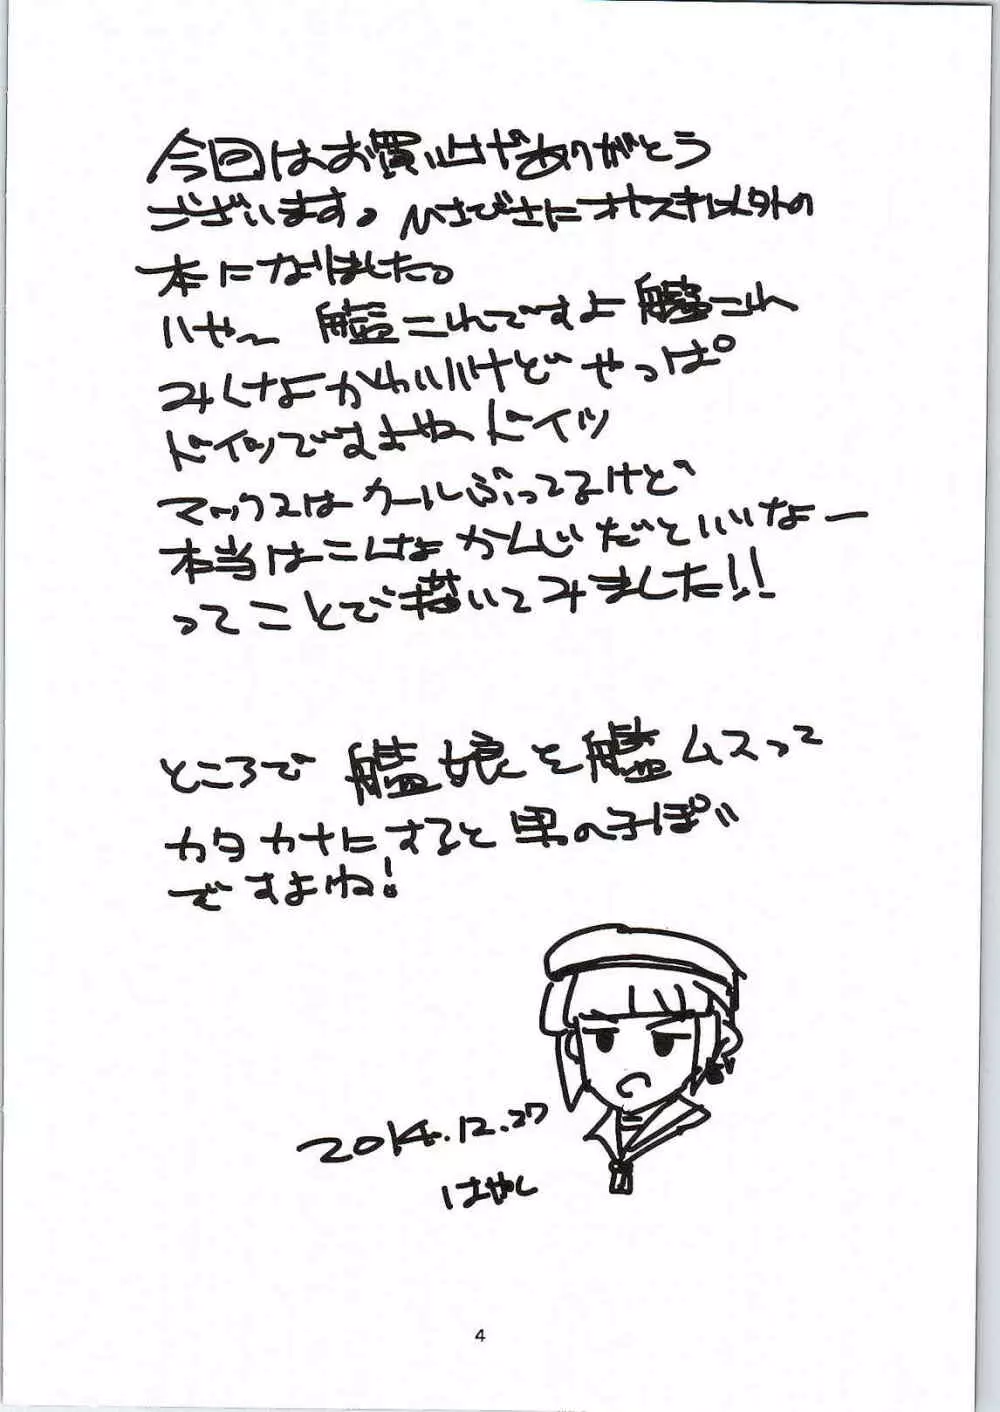 今回はお買い上げありがとう
ございます。ひさびさにオヤスキ以外の
本になりました。
いや〜 艦これですよ艦これ
みんなかわいいけどやっぱ
ドイツですよね〜ドイツ
マックスはクールぶってるけど
本当はこんなかんじだといいなー
ってことで描いてみました!!
ところで艦娘を艦ムスって
カタカナにすると男の子ぽい
ですよね!
2014.12.27
はやし
4